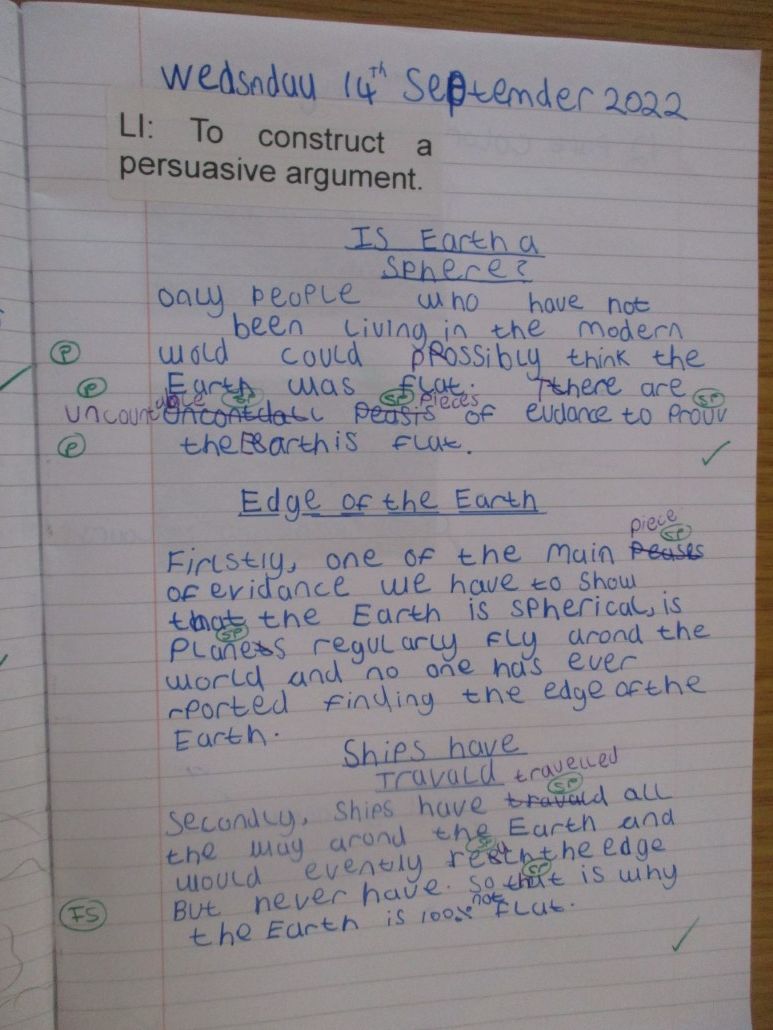 Wedsnday 14th September 2022
LI: To construct a
persuasive argument.
Is Earth a
Sphere?
only people who have not
been living in the modern
P wold could possibly think the
P Earth was flat. There are SP
able SP SP pieces
uncount uncontdall peasis of evdance to prouv
P the Earth is flat.
Edge of the Earth
piece SP
Firlstly, one of the main peases
of evidance we have to show
that the Earth is spherical, is
SP
Planets regularly fly arond the
world and no one has ever
rported finding the edge of the
Earth.
Ships have
Travald travelled
SP
Secondly, Ships have travald all
the way arond the Earth and
SP
would evently the edge
SP
But never have. So that is why
FS not
the Earth is 100% flat.